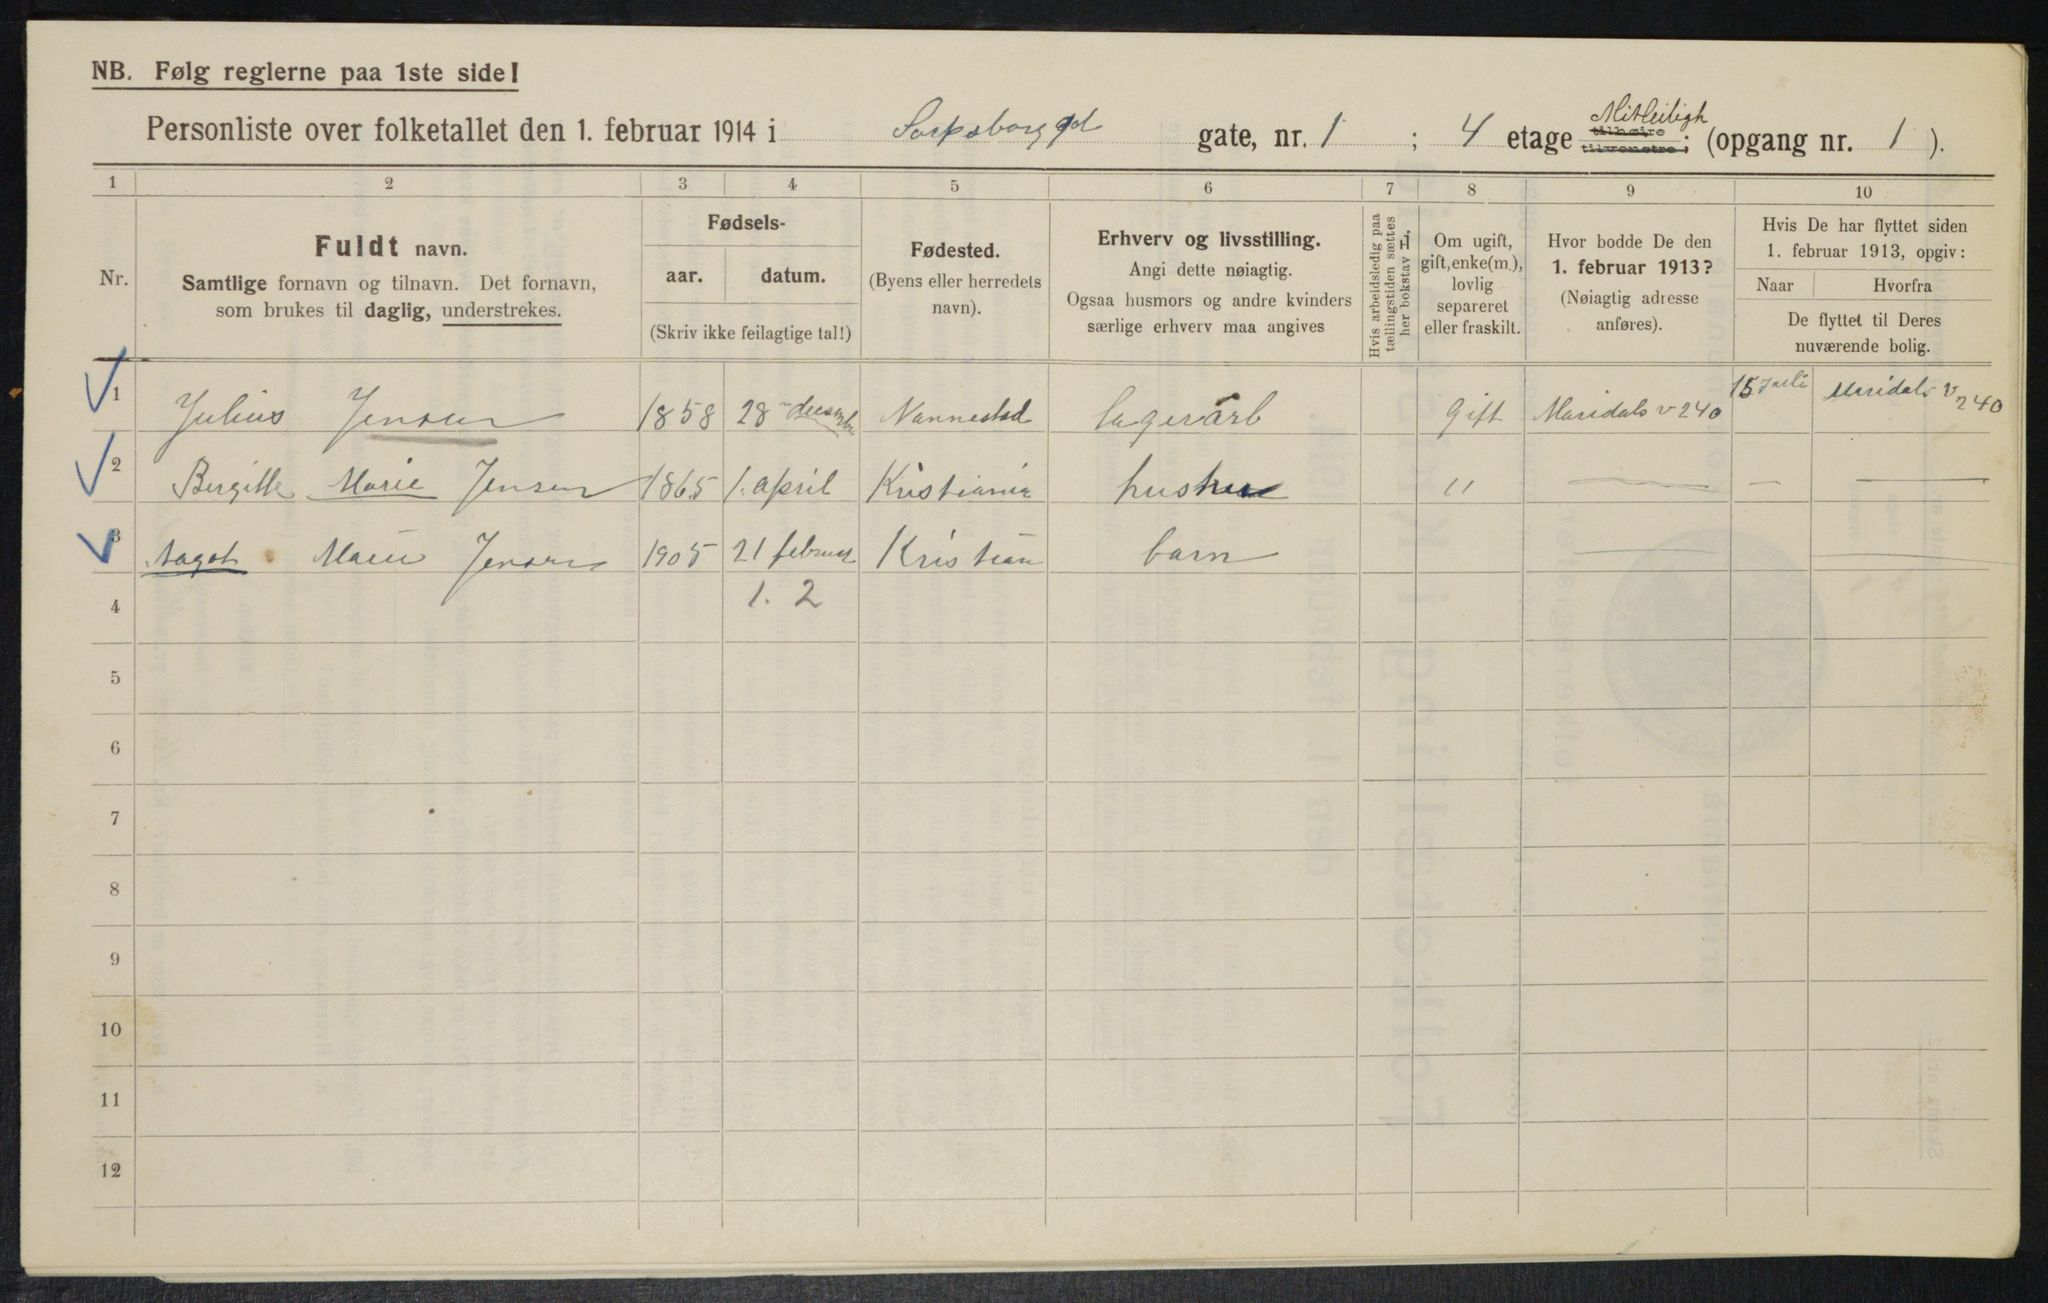 NB. Følg reglerne paa 1ste side!
Personliste over folketallet den 1. februar 1914 i Sarpsborggd gate, nr. 1 ; 4 etage tilhøire tilvenstre; (opgang nr. 1 ).
1 2 3 4 5 6 7 8 9 10
Nr.
Fuldt navn.
Samtlige fornavn og tilnavn. Det fornavn,
som brukes til daglig, understrekes.
Fødsels-
aar. datum.
(Skriv ikke feilagtige tal!)
Fødested.
(Byens eller herredets
navn).
Erhverv og livsstilling.
Angi dette nøiagtig.
Ogsaa husmors og andre kvinders
særlige erhverv maa angives
Hvis arbeidsledig paa
tællingstiden sættes
her bokstav L,
Om ugift,
gift, enke(m.),
lovlig
separeret
eller fraskilt.
Hvor bodde De den
1. februar 1913?
(Nøiagtig adresse
anføres).
Hvis De har flyttet siden
1. februar 1913, opgiv:
Naar Hvorfra
De flyttet til Deres
nuværende bolig.
1 Julius Jensen 1858 28 decembr Nannestad lagerarb Gift Maridals v 240 15 Juli Maridals v 240
2 Bergitte Marie Jensen 1865 1. april Kristiania hustru " — — —
3 Aagot Marie Jensen 1905 21 februar Kristian barn — —
4 1. 2
5
6
7
8
9
10
11
12